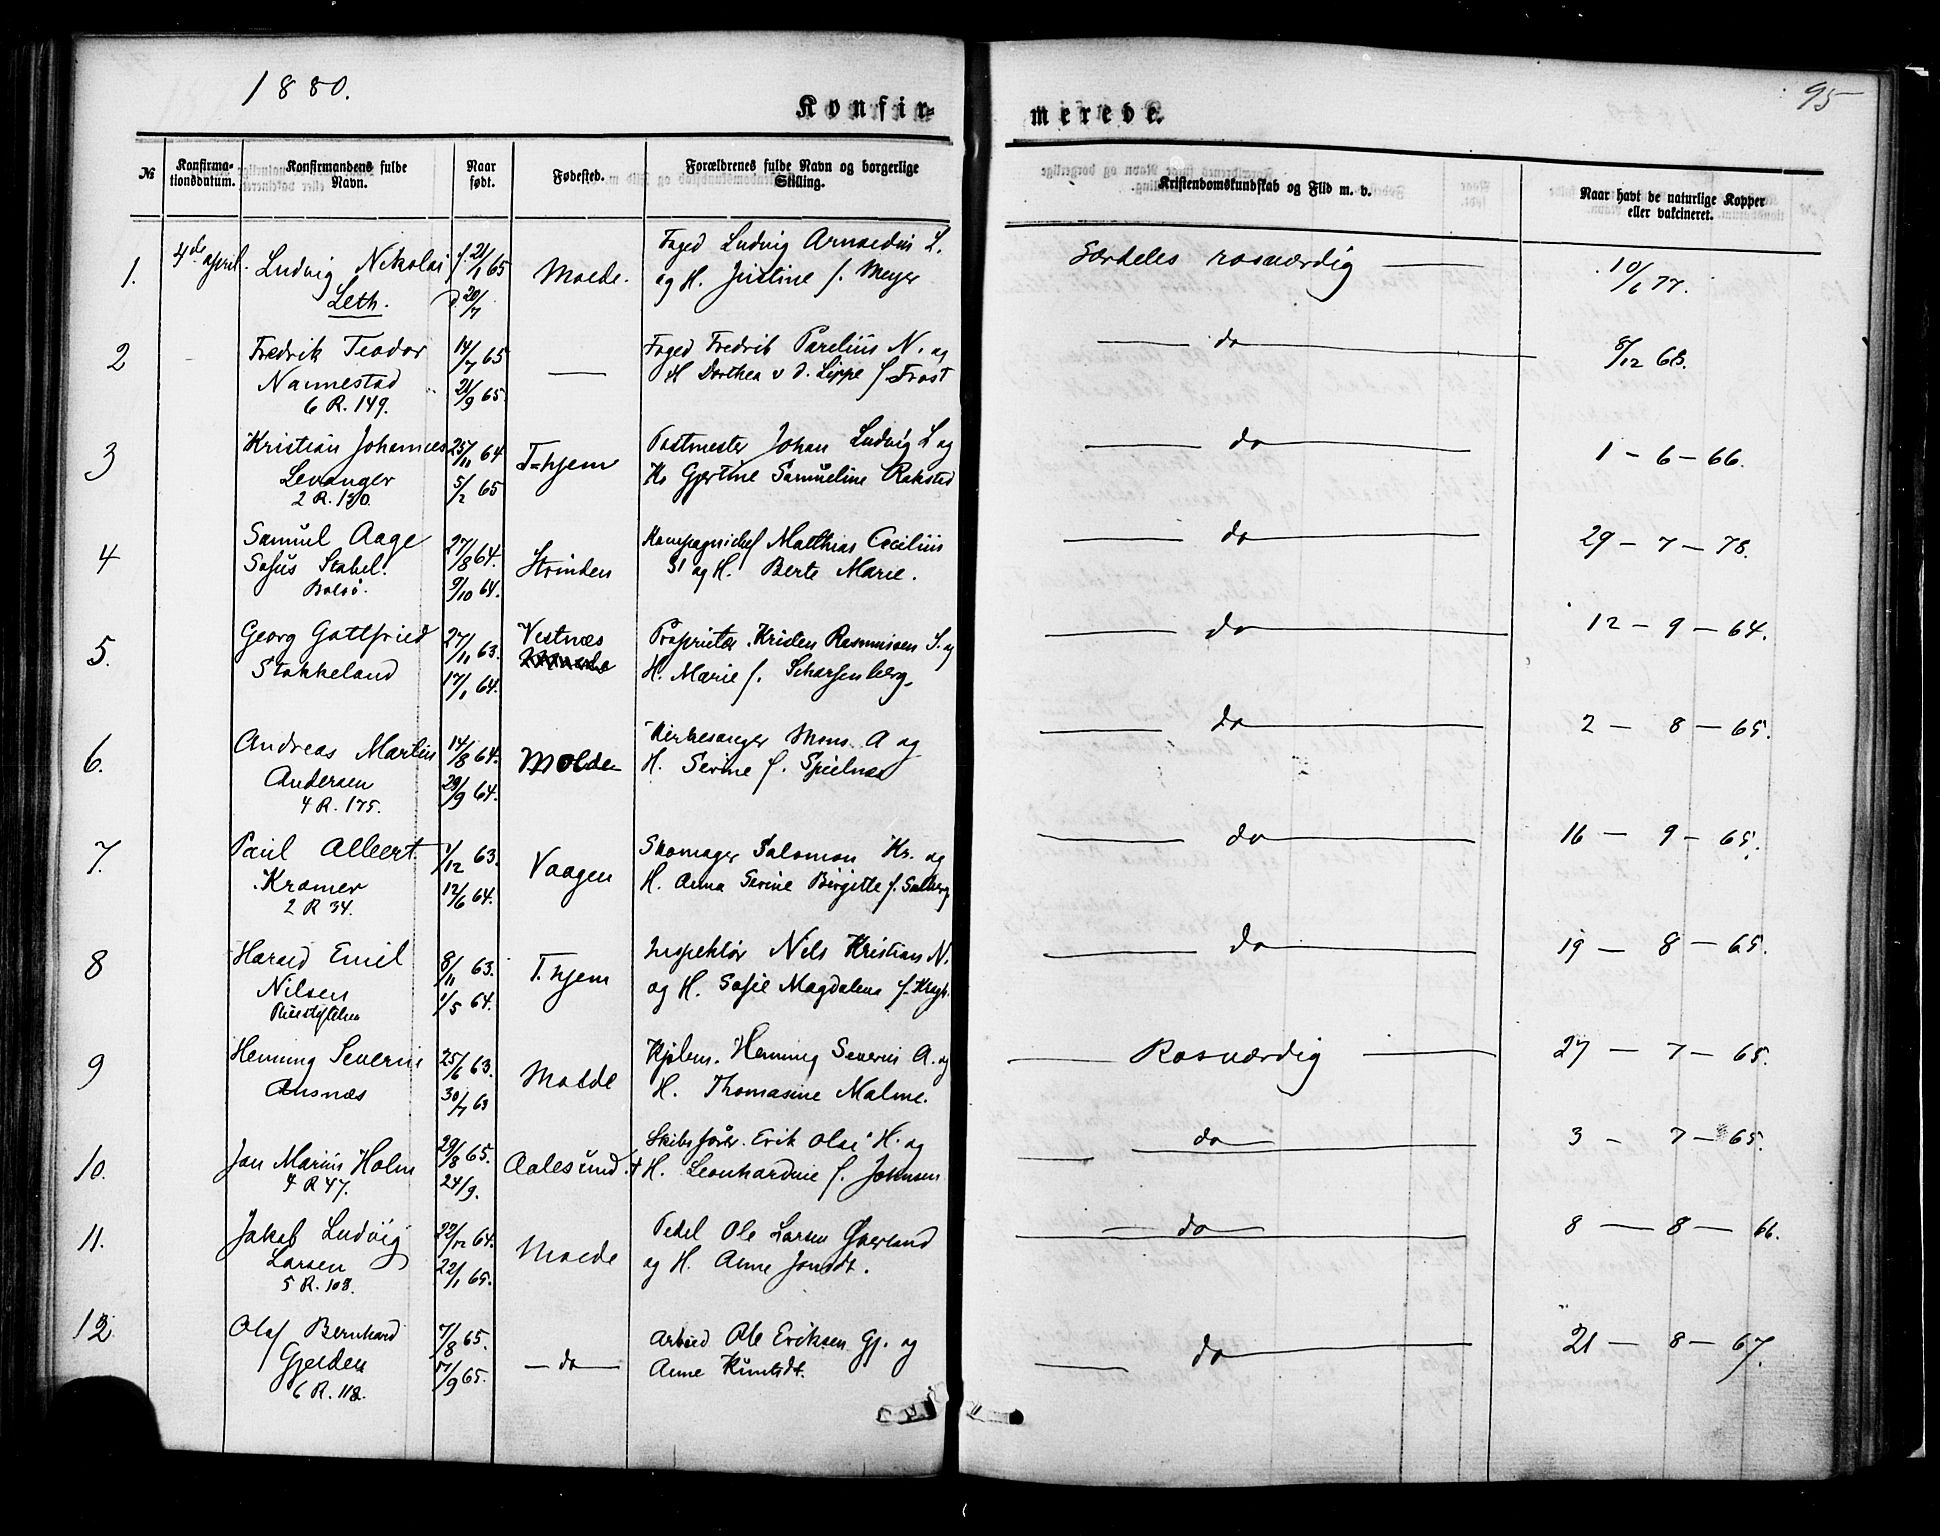 1880.
95
Konfir-
merede.
№
Konfirma-
tionsdatum.
Konfirmandens fulde
Navn.
Naar
født.
Fødested.
Forældrenes fulde Navn og borgerlige
Stilling.
Kristendomskundskab og Flid m. v.
Naar havt de naturlige Kopper
eller vakcineret.
1. 4de april. Ludvig Nikolai f. 21/1 65 Molde. Foged Ludvig Arnoldus L. Særdeles rosværdig 10/6 77.
Leth. d. 20/7 og H. Justine f. Meyer
2 Fredrik Teodor 14/7 65 — Foged Fredrik Parelius N. og do 8/12 68.
Nannestad 21/9 65. H Dorthea v. d. Lippe f. Frost
6 R. 149.
3 Kristian Johannes 25/11 64 T-hjem Postmester Johan Ludvig L og do 1 - 6 - 66.
Levanger 5/2 65 Hs Gjertine Samueline Rokstad
2 R. 130.
4 Samuel Aage 27/8 64. Strinden Kompagnichef Matthias Cecilius do 29 - 7 - 78.
Sofus Stabel. 9/10 64. St og H. Berte Marie.
Bolsø.
5. Georg Gottfried 27/11 63. Vestnæs Proprietær Kristen Rasmussen S. og do 12 - 9 - 64.
Stokkeland 17/1 64. H. Marie f. Scharfenberg.
6. Andreas Martin 14/8 64. Molde Kirkesanger Mons A og do 2 - 8 - 65.
Andersen 29/9 64. H. Serine f.
4 R. 175.
7. Paul Albert 1/12 63. Vaagen Skomager Salomon Kr. og do 16 - 9 - 65.
Kramer 12/6 64. H. Anna Serine Birgitte f. Solberg
2 R 34.
8 Harald Emil 8/11 63. T.hjem Inspektør Nils Kristian N. do 19 - 8 - 65.
Nilsen 1/5 64. og H. Sofie Magdalena f. Krogh.
9 Henning Severin 25/6 63. Molde Kjøbm. Henning Severin A. og Rosværdig 27 - 7 - 65.
Ansnæs 30/7 63 H. Thomasine Malme.
10. Jon Marius Holm 29/8 65. Aalesund. Skibsfører. Erik Olai H. og do 3 - 7 - 65.
4 R 47. 24/9. H. Leonhardine f. Johnsen
11. Jakob Ludvig 22/12 64. Molde Pedel Ole Larsen Øverland do 8 - 8 - 66.
Larsen 22/1 65. og H. Anne Jonsdt.
5 R. 108.
12. Olaf Bernhard 7/8 65. — do — Arbeid Ole Eriksen Gj. og do 21 - 8 - 67.
Gjelden 17/9 65. Anne Knutsdt.
6 R. 118.